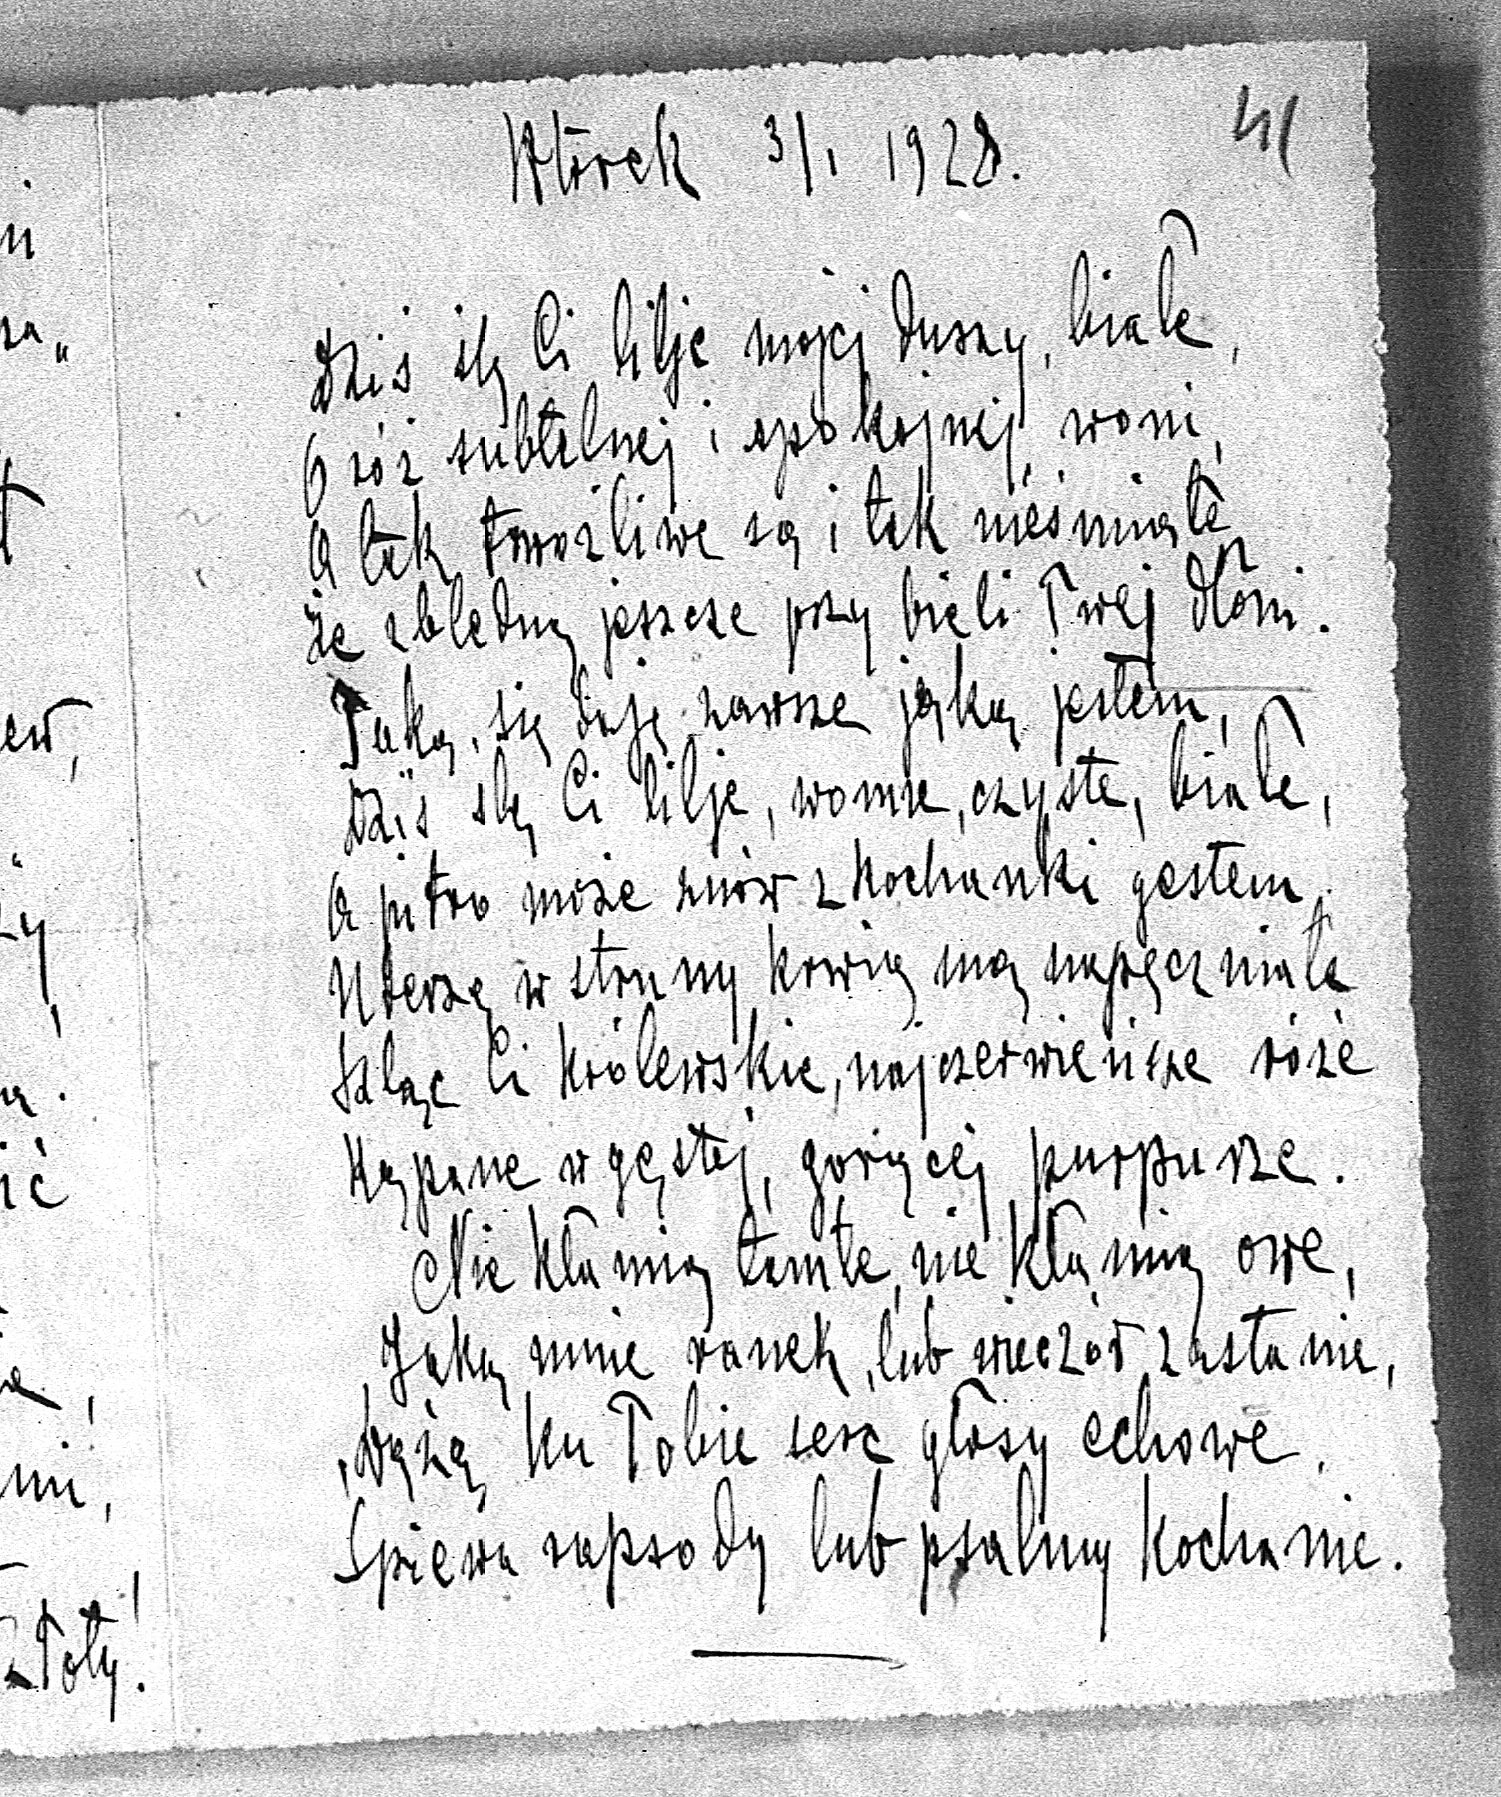 41
Wtorek 3/I 1928.
Dziś ślę Ci lilje mojej duszy, białe,
O róż subtelnej i spokojnej woni,
A tak trwożliwe są i tak nieśmiałe
że zbledną jeszcze przy bieli Twej dłoni.
Taką się daję zawsze jaką jestem,
Dziś ślę Ci lilje, wonne, czyste, białe,
A jutro może znów z kochanki gestem
Uderzę w struny krwią mą napęczniałe
Szląc Ci królewskie, najczerwieńsze róże
Kąpane w gęstej, gorącej purpurze.
Nie kłamią tamte, nie kłamią owe,
Jaką mnie ranek, lub wieczór zastanie,
Dążą ku Tobie serc głosy echowe,
Śpiewa rapsody lub psalmy kochanie.